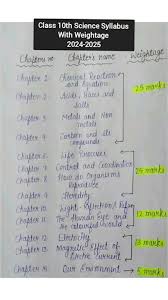 Class 10th Science Syllabus
With Weightage
2024-2025
Chapters no Chapter's name Weightage
Chapter 1 Chemical Reactions
and Equation
Chapter 2 Acids, Bases and
Salts
25 marks
Chapter 3 Metals and Non
metals
Chapter 4 Carbon and its
compounds
Chapter 5 Life Processes
Control and Coordination
25 marks
How do Organisms
Reproduce
Heredity
Chapter 10 Light
Chapter 11 The Human Eye and
the colourful world
12 marks
Chapter 12 Electricity
Chapter 13 Magnetic Effect of
Electric Current
13 marks
Our Environment → 5 marks